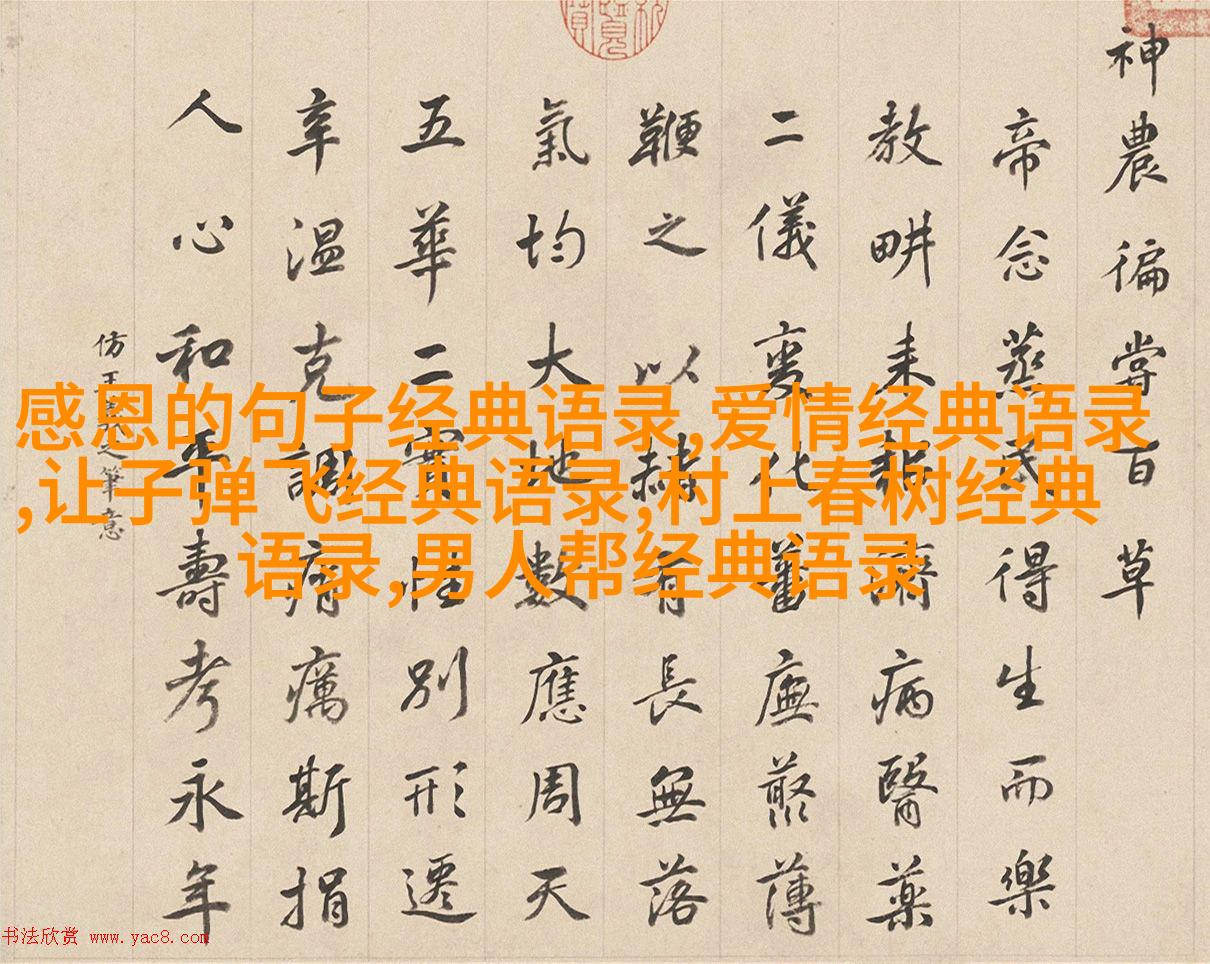 神農徧嘗百草
帝念蒸民得生而樂
教畊耒耜濟病醫藥
二儀化蕃廡薄
鞭之以赭有長無落
氣均大地數應周天
五華二實性別形遷
辛溫克調癘斯捐
人心和平壽考永年
仿王羲之筆意
感恩的句子经典语录,爱情经典语录
,让子弹飞经典语录,村上春树经典
语录,男人帮经典语录
书法欣赏 www.yac8.com